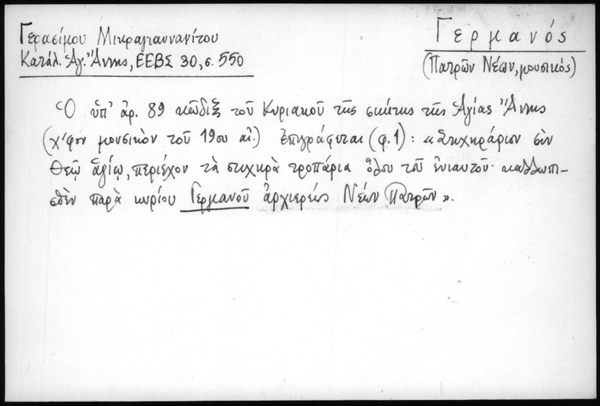 Γερασίμου Μικραγιαννανίτου
Κατάλ. Ἁγ. Ἄννης, ΕΕΒΣ 30, σ. 550
Γερμανός
(Πατρῶν Νέων, μουσικός)
Ὁ ὑπ' ἀρ. 89 κῶδιξ τοῦ Κυριακοῦ τῆς σκήτης τῆς Ἁγίας Ἄννης
(χ/φον μουσικὸν τοῦ 19ου αἰ.) ἐπιγράφεται (φ. 1): «Στιχηράριον σὺν
Θεῷ ἁγίῳ, περιέχον τὰ στιχηρὰ τροπάρια ὅλου τοῦ ἐνιαυτοῦ· καλλωπι-
σθὲν παρὰ κυρίου Γερμανοῦ ἀρχιερέως Νέων Πατρῶν».